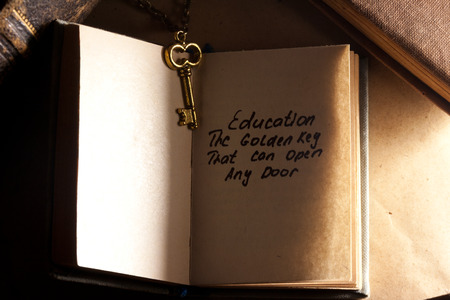 Education
The Golden Key
That Can Open
Any Door